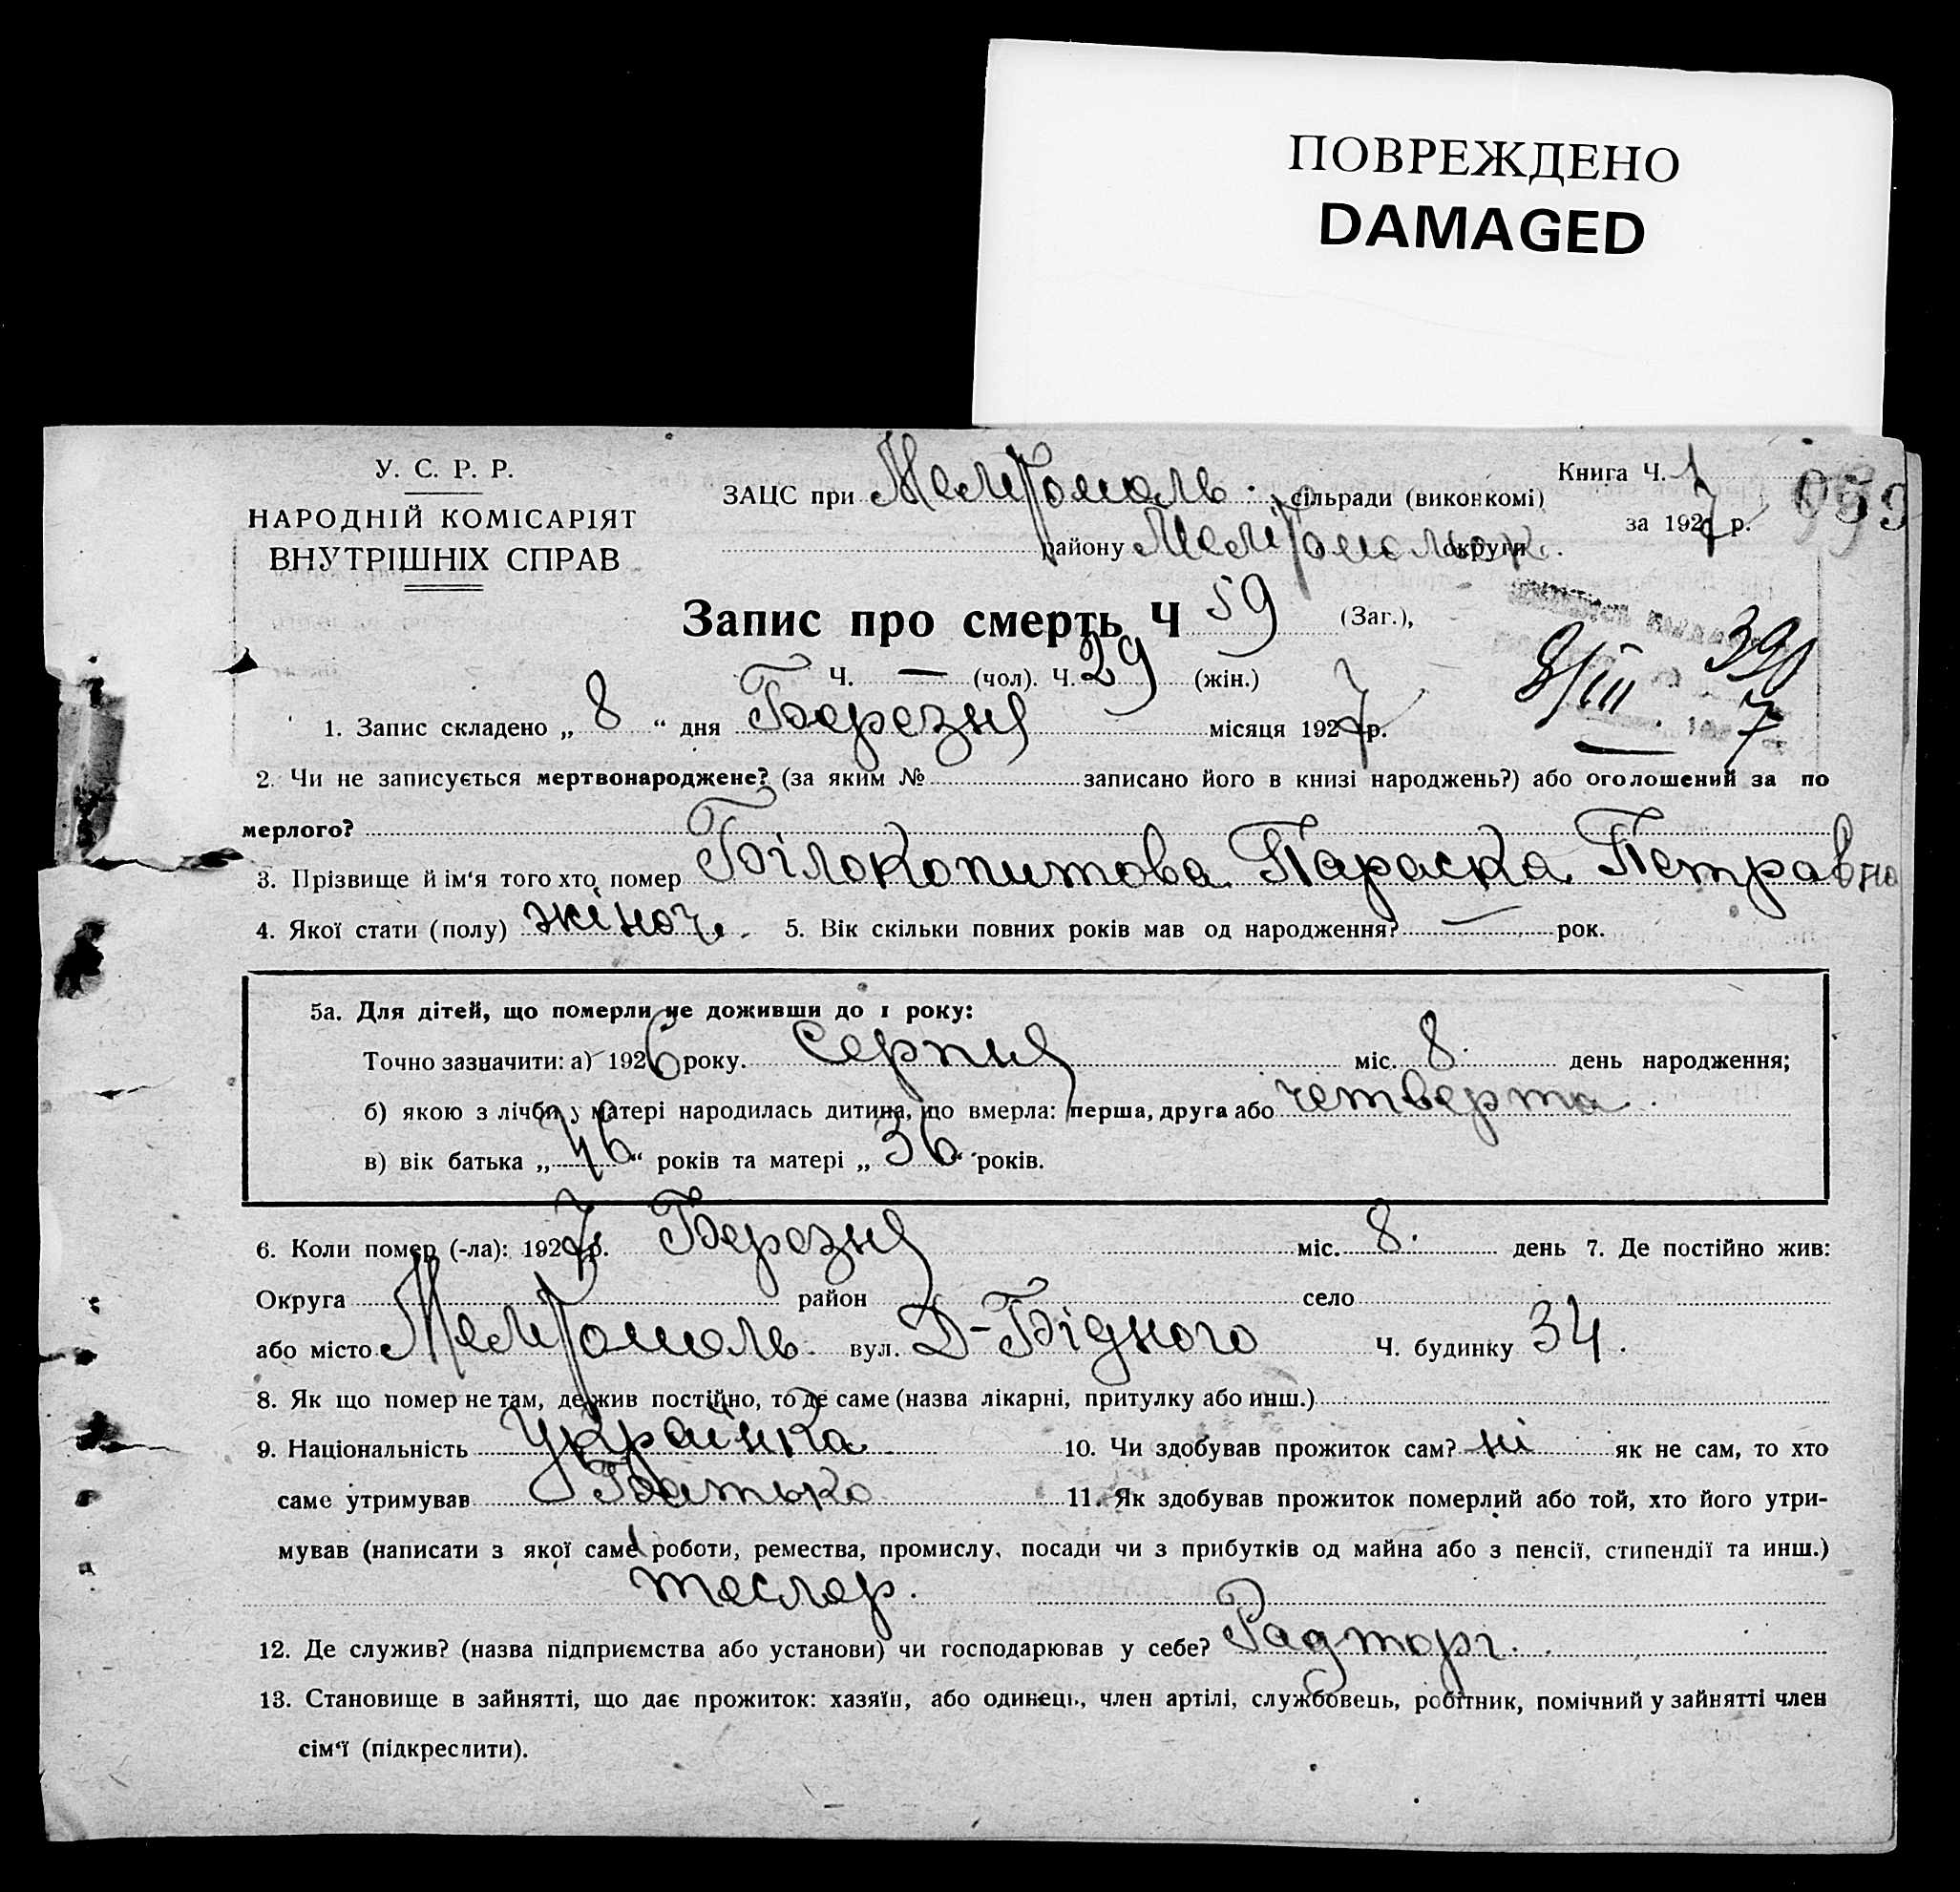 ПОВРЕЖДЕНО
DAMAGED
У. С. Р. Р.
НАРОДНІЙ КОМІСАРІЯТ
ВНУТРІШНІХ СПРАВ
ЗАЦС при Мелітополь. сільради (виконкомі)
району Мелітопольск. округи
Книга Ч. 1
за 1927 р.
Запис про смерть Ч 59 (Заг.),
Ч. — (чол). Ч. 29 (жін.)
8/III 7
390
1. Запис складено „ 8 “ дня Березня місяця 1927 р.
2. Чи не записується мертвонароджене? (за яким № записано його в книзі народжень?) або оголошений за по
мерлого?
3. Прізвище й ім‘я того хто помер Білокопитова Параска Петравна
4. Якої стати (полу) жіноч. 5. Вік скільки повних років мав од народження? — рок.
5а. Для дітей, що померли не доживши до 1 року:
Точно зазначити: а) 1926 року. Серпня міс. 8. день народження;
б) якою з лічби у матері народилась дитина, що вмерла: перша, друга або четверта.
в) вік батька „ 46 “ років та матері „ 36 “ років.
6. Коли помер (-ла): 1927 р. Березня міс. 8. день 7. Де постійно жив:
Округа район село
або місто Мелітополь. вул. Д-Бідного Ч. будинку 34.
8. Як що помер не там, де жив постійно, то де саме (назва лікарні, притулку або инш.)
9. Національність Українка 10. Чи здобував прожиток сам? ні як не сам, то хто
саме утримував Батько 11. Як здобував прожиток померлий або той, хто його утри-
мував (написати з якої саме роботи, ремества, промислу, посади чи з прибутків од майна або з пенсії, стипендії та инш.)
тесляр.
12. Де служив? (назва підприємства або установи) чи господарював у себе? Радторг.
13. Становище в зайнятті, що дає прожиток: хазяїн, або одинець, член артілі, службовець, робітник, помічний у зайнятті член
сім‘ї (підкреслити).